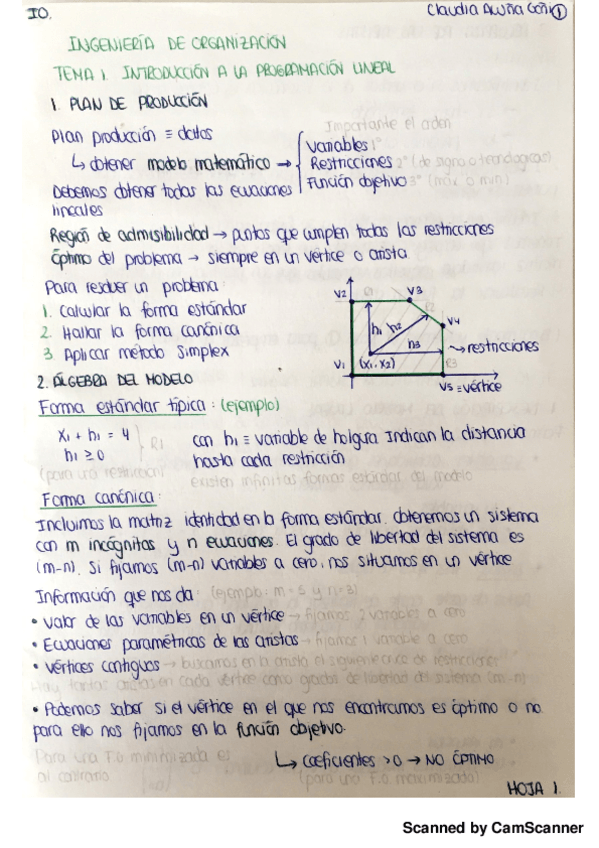 IO.
Claudia Acuña Goñi 1
INGENIERÍA DE ORGANIZACIÓN
TEMA 1. INTRODUCCIÓN A LA PROGRAMACIÓN LINEAL
1. PLAN DE PRODUCCIÓN
Importante el orden
Plan producción ≡ datos
↳ obtener modelo matemático →
Variables 1º
Restricciones 2º (de signo o tecnológicas)
Función objetivo 3º (máx o min)
Debemos obtener todas las ecuaciones
lineales
Región de admisibilidad → puntos que cumplen todas las restricciones
Óptimo del problema → siempre en un vértice o arista.
Para resolver un problema:
1. Calcular la forma estándar
2. Hallar la forma canónica
3. Aplicar método simplex
V2 R1 V3
R2
V4
h1 h2
h3
→ restricciones
R3
V1 (x1, x2)
V5 ≡ vértice
2. ÁLGEBRA DEL MODELO
Forma estándar típica: (ejemplo)
x1 + h1 = 4
h1 ≥ 0
R1
con h1 ≡ variable de holgura. Indican la distancia
hasta cada restricción.
(para una restricción)
existen infinitas formas estándar del modelo
Forma canónica:
Incluimos la matriz identidad en la forma estándar. obtenemos un sistema
con m incógnitas y n ecuaciones. El grado de libertad del sistema es
(m-n). Si fijamos (m-n) variables a cero, nos situamos en un vértice
Información que nos da: (ejemplo: m = 5 y n = 3)
• Valor de las variables en un vértice → fijamos 2 variables a cero
• Ecuaciones paramétricas de las aristas → fijamos 1 variable a cero
• vértices contiguos → buscamos en la arista el siguiente cruce de restricciones
Hay tantas aristas en cada vértice como grados de libertad del sistema (m-n)
• Podemos saber si el vértice en el que nos encontramos es óptimo o no.
para ello nos fijamos en la función objetivo.
Para una F.O minimizada es
al contrario
↳ Coeficientes > 0 → NO ÓPTIMO
(para una F.O maximizada)
HOJA 1.
Scanned by CamScanner